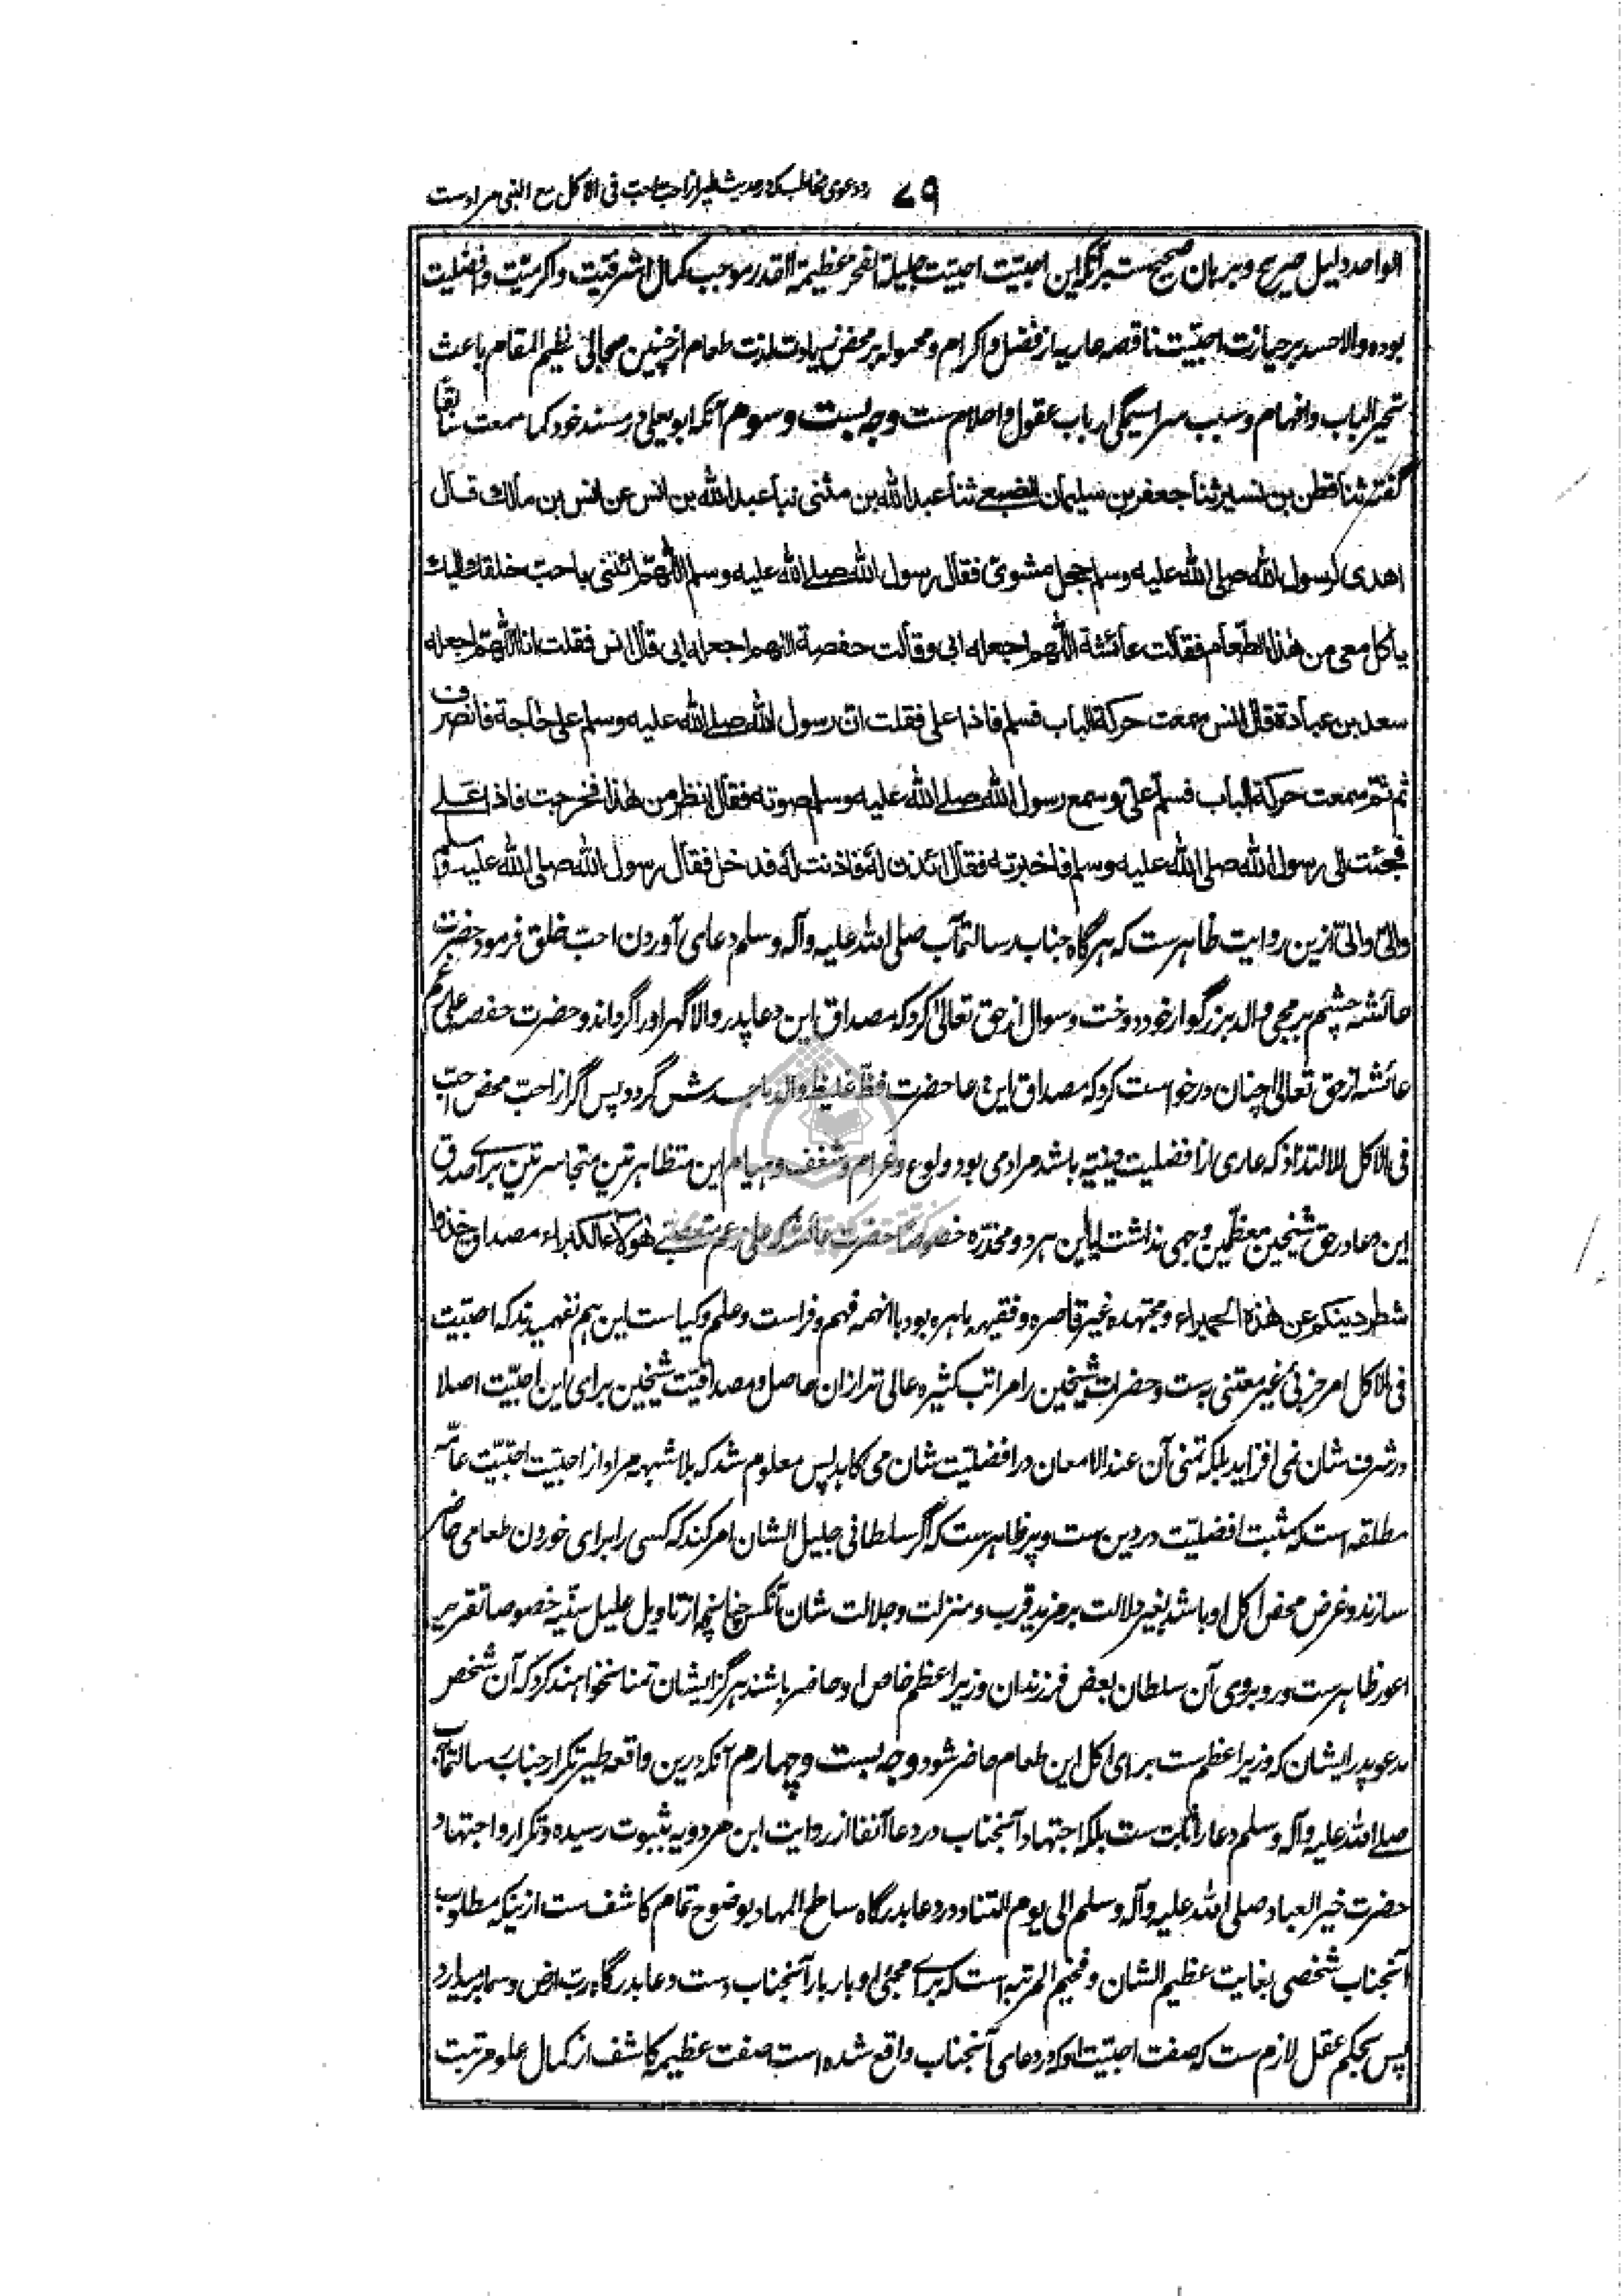 ۷۹ رد دعوی مخاطب که در حدیث طیر از احب احب فی الاکل مع النبی مرادست
الواحد دلیل صریح و برهان صحیح ست برآنکه این احبیّت احبیّت جلیلة الفخر عظیمة القدر موجب کمال اشرفیّت و اکرمیّت و افضلیت
بوده والا حسد بر حیازت احبیّت ناقصه عاریه از فضل و اکرام و محموله بر محض زیادت لذت طعام از چنین مجالی عظیم المقام باعث
تحیر الباب و افهام و سبب سراسیمگی ارباب عقول و احلام ست وجه بست و سوم آنکه ابو یعلی در مسند خود کما سمعت سابقا
گفته ثنا قطن بن نسیر ثنا جعفر بن سلیمان الضبعے ثنا عبدالله بن مثنی نبا عبدالله بن انس عن انس بن مالك قال
اهدی لرسول الله صلی الله علیه وسلم حجل مشوی فقال رسول الله صلے الله علیه وسلم اللّٰهمّ ائتنی باحبّ خلقك الیك
یاکل معی من هٰذا الطّعام فقالت عائشة اللّٰهم اجعله ابی وقالت حفصة اللّٰهم اجعله ابی قال انس فقلت انا اللّٰهمّ اجعله
سعد بن عبادة قال انس سمعت حرکة الباب فسلم فاذا علی فقلت ان رسول الله صلے الله علیه وسلم علی حاجة فانصرف
ثم سمعت حرکة الباب فسلم علیّ وسمع رسول الله صلے الله علیه وسلم صوته فقال انظر من هٰذا فخرجت فاذا علے
فجئت الی رسول الله صلی الله علیه وسلم فاخبرته فقال ائذن له فاذنت له فدخل فقال رسول الله صلی الله علیه وسلم
والیّ والیّ ازین روایت ظاهرست که هرگاه جناب رسالتمآب صلی الله علیه وآله وسلم دعای آوردن احبّ خلق فرمود حضرت
عائشه چشم بر مجی والد بزرگوار خود دوخت و سوال از حق تعالیٰ کرد که مصداق این دعا پدر والا گهر او را گرداند و حضرت حفصه علی رغم
عائشه از حق تعالیٰ چنان درخواست کرد که مصداق این دعا حضرت فظّ غلیظ والد ماجدش گردد پس اگر از احبّ محض احبّ
فی الاکل للالتذاذ که عاری از افضلیت دینیّه باشد مراد می بود ولوع و غرام و شغف و هیام این متظاهرتین متجاسرتین برای صدق
این دعا در حق شیخین معظّمین وجهی نداشت آیا این هر دو مخدّره خصوصًا حضرت عائشه که علی زعم متعصّبی هؤلاء مصداق خذوا
شطر دینکم عن هٰذه الحمیراء و مجتهده غیر قاصره و فقیهه ماهره بود با انهمه فهم و فراست و علم و کیاست این هم نفهمیدند که احبّیت
فی الاکل امر جزئی غیر معتنی به ست و حضرات شیخین را مراتب کثیره عالی تر ازان حاصل و مصداقیّت شیخین برای این احبیّت اصلا
در شرف شان نمی افزاید بلکه تمنی آن عند الامعان در افضلیّت شان می کاهد پس معلوم شد که بلا شبهه مراد از احبیّت احبّیّت عامّه
مطلقه است که مثبت افضلیّت در دین ست و پر ظاهرست که اگر سلطانی جلیل الشان امر کند که کسی را برای خوردن طعامی حاضر
سازند و غرض محض اکل او باشد بغیر دلالت بر مزید قرب و منزلت و جلالت شان آنکس چنانچه از تاویل علیل سنّیه خصوصا تقریر
اعور ظاهرست و روبروی آن سلطان بعض فرزندان وزیر اعظم خاص او حاضر باشند هرگز ایشان تمنا نخواهند کرد که آن شخص
مدعو پدر ایشان که وزیر اعظم ست برای اکل این طعام حاضر شود وجه بست و چهارم آنکه درین واقعه طیر تکرار جناب رسالتمآب
صلے الله علیه وآله وسلم دعا را ثابت ست بلکه اجتهاد آنجناب در دعا آنفا از روایت ابن مردویه بثبوت رسیده و تکرار و اجتهاد
حضرت خیر العباد صلی الله علیه وآله وسلم الی یوم التناد در دعا بدرگاه ساطح المهاد بوضوح تمام کاشف ست ازینکه مطلوب
آنجناب شخصی بغایت عظیم الشان و فخیم المرتبه است که برای مجئ او بار بار آنجناب دست دعا بدرگاه رب ارض و سما بر میارد
پس بحکم عقل لازم ست که صفت احبیّت او که در دعای آنجناب واقع شده است صفت عظیمه کاشف از کمال علو مرتبت